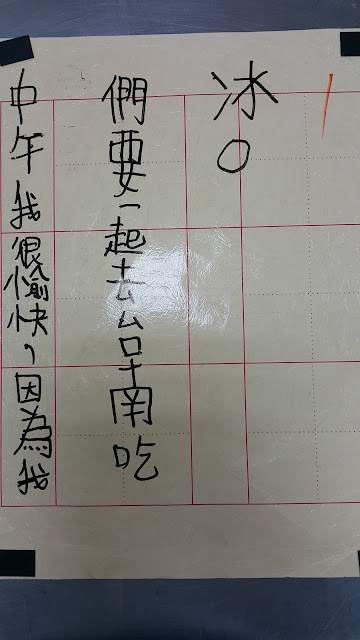 中午我很愉快，因為我
們要一起去台南吃
冰。